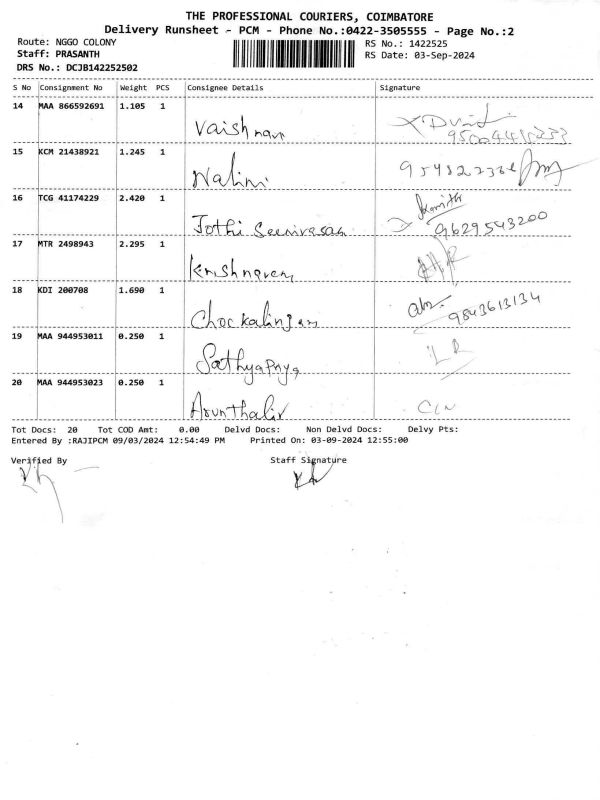 THE PROFESSIONAL COURIERS, COIMBATORE
Delivery Runsheet - PCM - Phone No.:0422-3505555 - Page No.:2
Route: NGGO COLONY RS No.: 1422525
Staff: PRASANTH RS Date: 03-Sep-2024
DRS No.: DCJB142252502
S No Consignment No Weight PCS Consignee Details Signature
14 MAA 866592691 1.105 1 Vaishnavi
15 KCM 21438921 1.245 1 Nalini
16 TCG 41174229 2.420 1 Jothi Seenivasan 9629543200
17 MTR 2498943 2.295 1
18 KDI 200708 1.690 1 Chockalingam 9843613134
19 MAA 944953011 0.250 1 Sathyapriya
20 MAA 944953023 0.250 1
Tot Docs: 20 Tot COD Amt: 0.00 Delvd Docs: Non Delvd Docs: Delvy Pts:
Entered By :RAJIPCM 09/03/2024 12:54:49 PM Printed On: 03-09-2024 12:55:00
Verified By Staff Signature